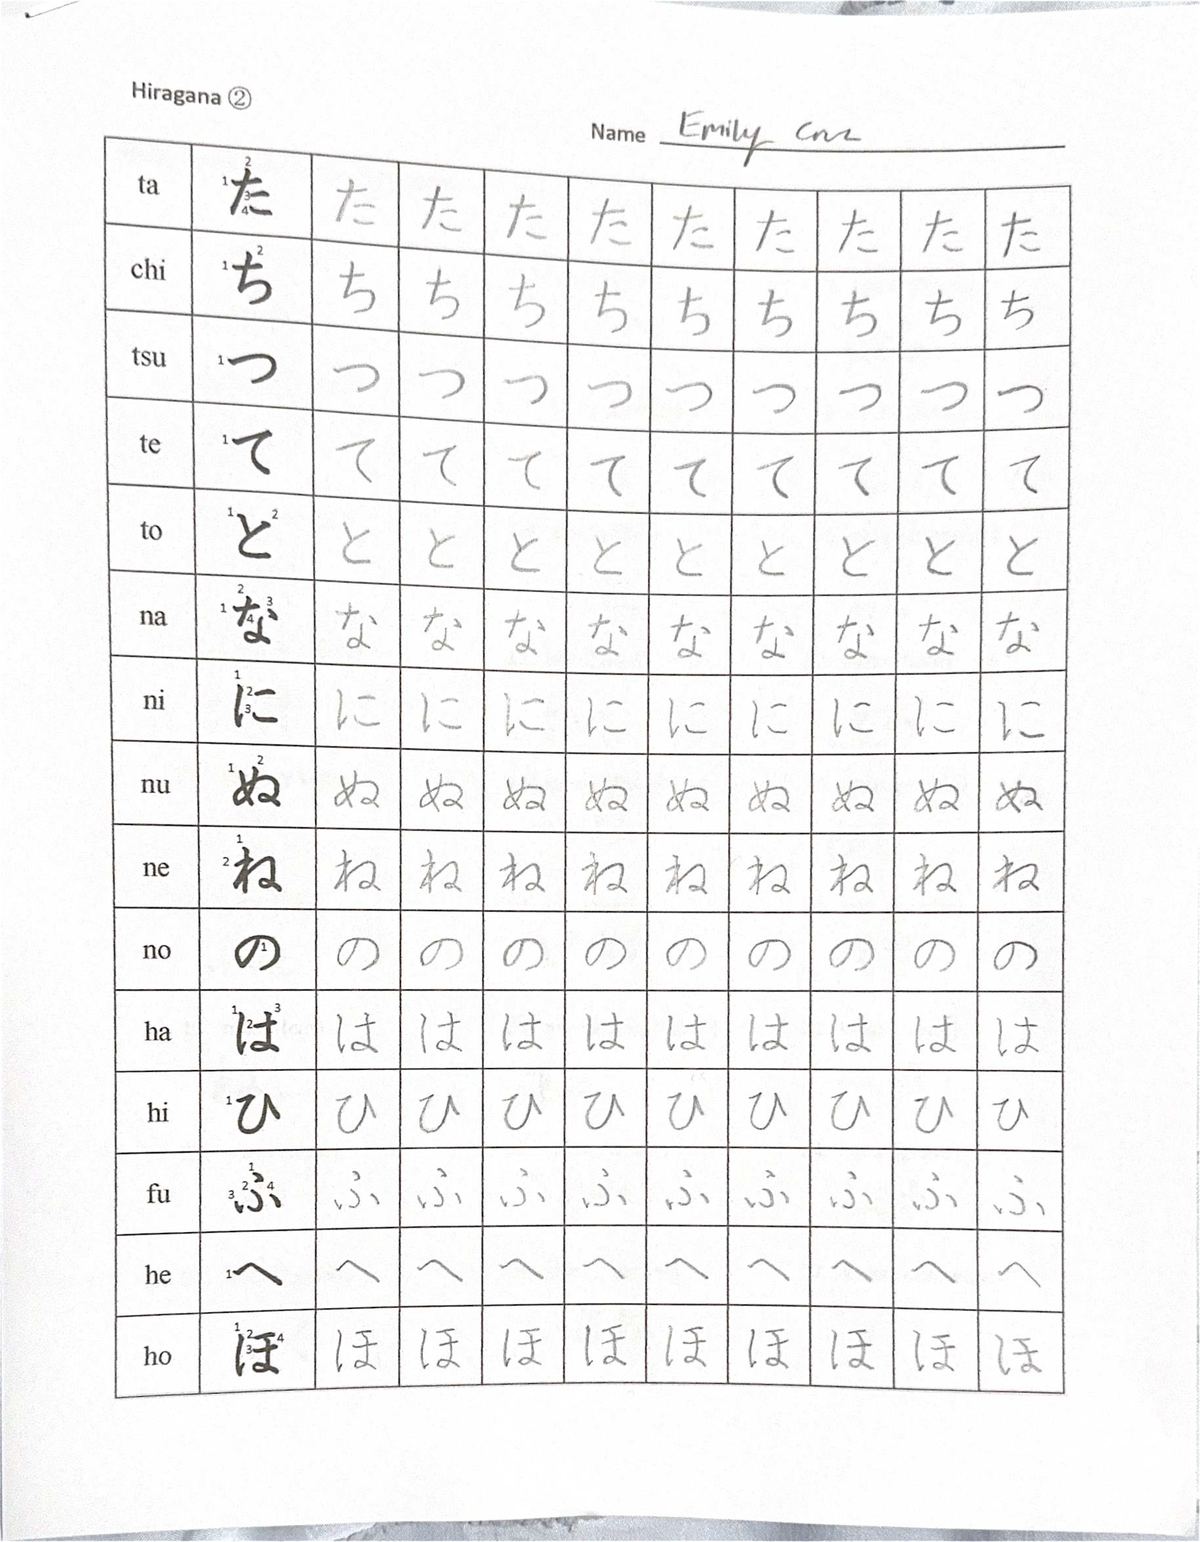 Hiragana ②
Name Emily Cruz
ta 1 2 3 4 た た た た た た た た た た
chi 1 2 ち ち ち ち ち ち ち ち ち ち
tsu 1 つ つ つ つ つ つ つ つ つ つ
te 1 て て て て て て て て て て
to 1 2 と と と と と と と と と と
na 1 2 3 4 な な な な な な な な な な
ni 1 2 3 に に に に に に に に に に
nu 1 2 ぬ ぬ ぬ ぬ ぬ ぬ ぬ ぬ ぬ ぬ
ne 1 2 ね ね ね ね ね ね ね ね ね ね
no 1 の の の の の の の の の の
ha 1 2 3 は は は は は は は は は は
hi 1 ひ ひ ひ ひ ひ ひ ひ ひ ひ ひ
fu 1 2 3 4 ふ ふ ふ ふ ふ ふ ふ ふ ふ ふ
he 1 へ へ へ へ へ へ へ へ へ へ
ho 1 2 3 4 ほ ほ ほ ほ ほ ほ ほ ほ ほ ほ